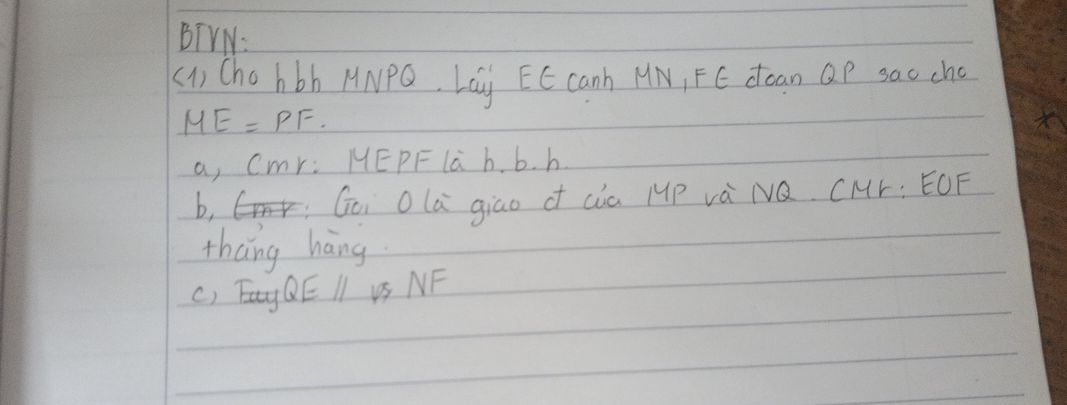 BTVN:
(1) Cho hbh MNPQ. Lấy E ∈ cạnh MN, F ∈ đoạn QP sao cho
ME = PF.
a, Cmr: MEPF là h.b.h.
b, Gọi O là giao đ của MP và NQ. CMr: EOF
thẳng hàng.
c) QE // vs NF